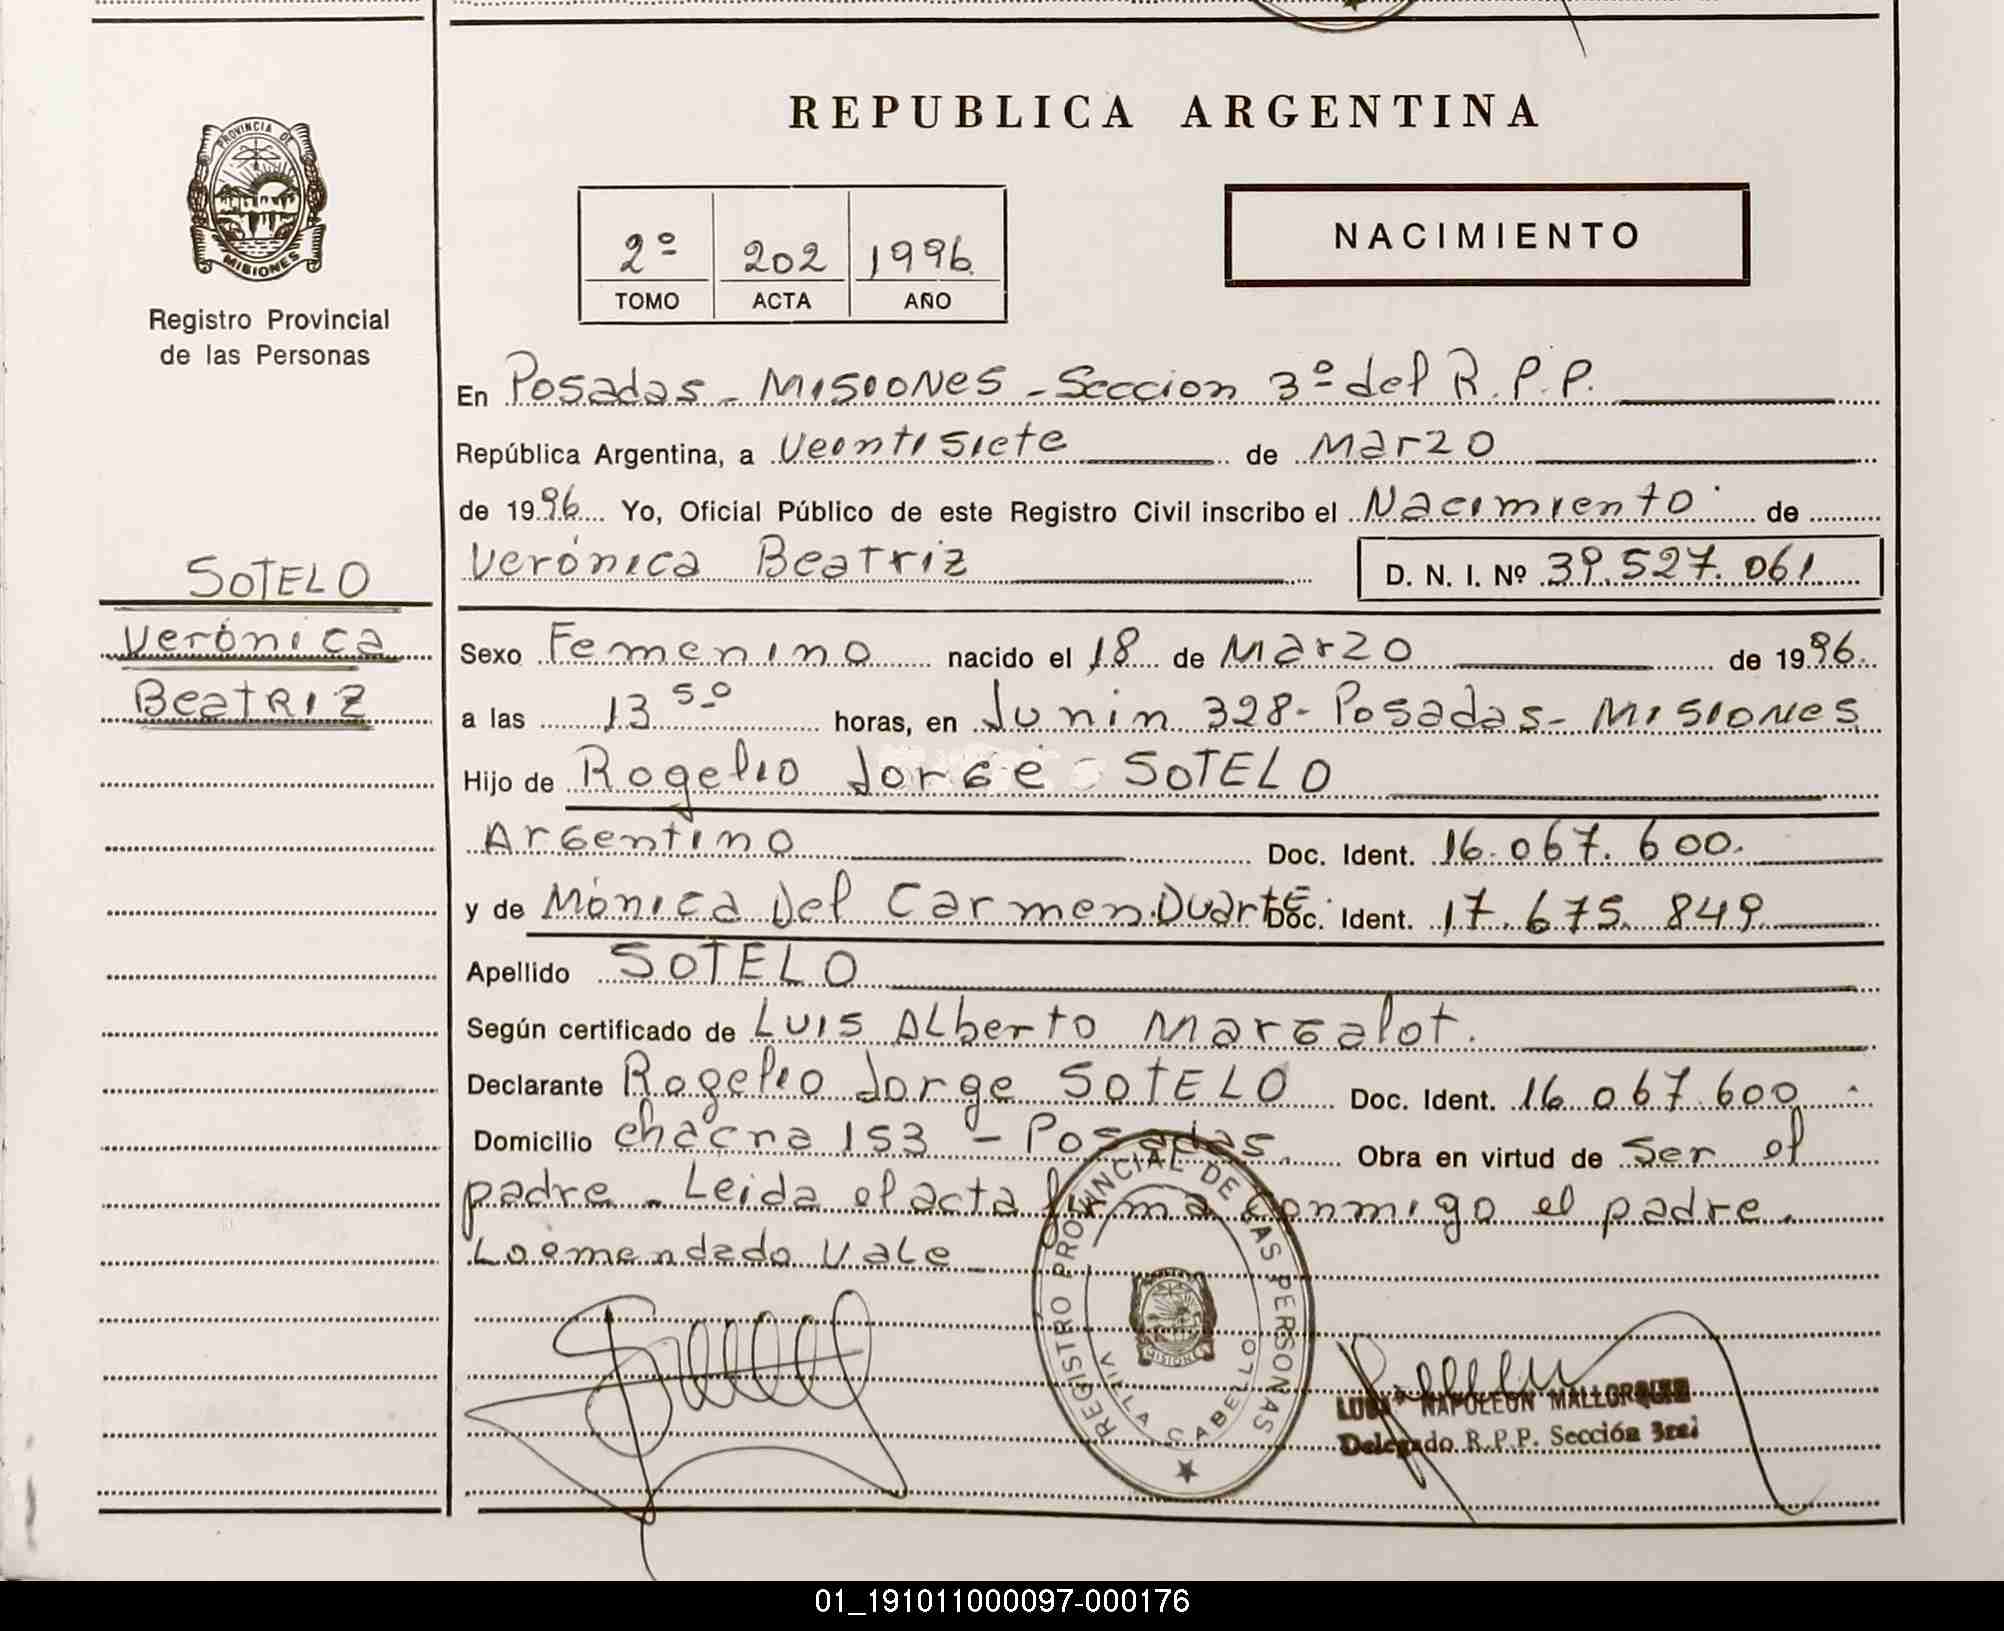 REPUBLICA ARGENTINA
PROVINCIA DE
MISIONES
Registro Provincial
de las Personas
2º 202 1996
TOMO ACTA AÑO
NACIMIENTO
En Posadas - Misiones - Seccion 3º del R.P.P.
República Argentina, a veintisiete de Marzo
de 1996 Yo, Oficial Público de este Registro Civil inscribo el Nacimiento de
Verónica Beatriz D. N. I. Nº 39.527.061
SOTELO
Verónica
Beatriz
Sexo Femenino nacido el 18 de Marzo de 1996
a las 13 50 horas, en Junin 328 - Posadas - Misiones
Hijo de Rogelio Jorge SOTELO
Argentino Doc. Ident. 16.067.600.
y de Mónica Del Carmen Duarte Doc. Ident. 17.675.849
Apellido SOTELO
Según certificado de Luis Alberto Margalot.
Declarante Rogelio Jorge SOTELO Doc. Ident. 16.067.600
Domicilio chacra 153 - Posadas. Obra en virtud de ser el
padre - Leida el acta firma conmigo el padre.
Lo emendado Vale
REGISTRO PROVINCIAL DE LAS PERSONAS
MISIONES
VILLA CABELLO
NAPOLEON
Delegado R.P.P. Sección
01_191011000097-000176